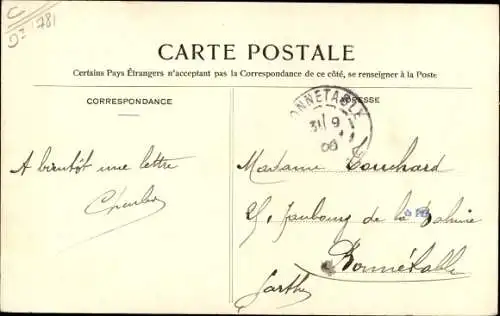 C
781
CARTE POSTALE
Certains Pays Étrangers n'acceptant pas la Correspondance de ce côté, se renseigner à la Poste
CORRESPONDANCE
ADRESSE
BONNETABLE
31 9
06
A bientôt une lettre
Charles
Madame Touchard
Faubourg de la
Bonnétable
Sarthe